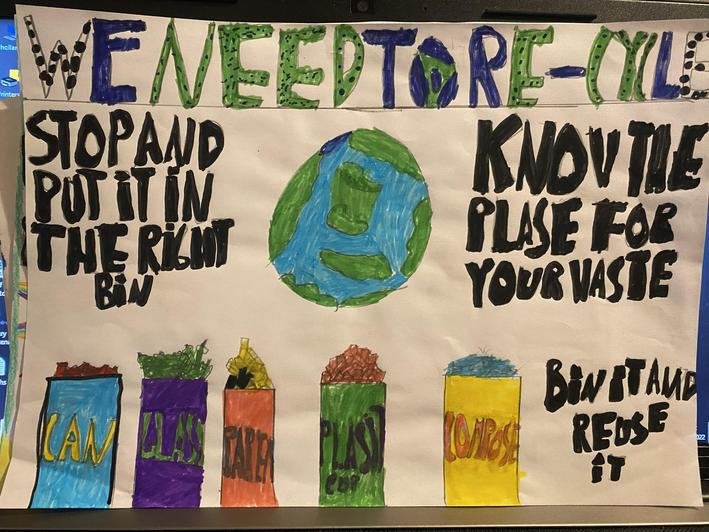 WE NEED TO RE-CYLE
STOP AND
PUT IT IN
THE RIGHT
BIN
KNOV THE
PLASE FOR
YOUR WASTE
CAN
GLASS
PAPER
PLASIT
CUP
COMPOSE
BIN IT AND
REUSE
IT